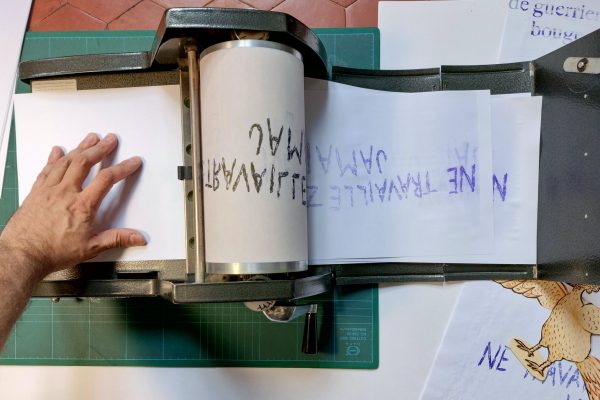 de guerrier
boug
TRAVAILLE
JAM
NE TRAVAILLEZ
JAMAI
N
NE TRAVA